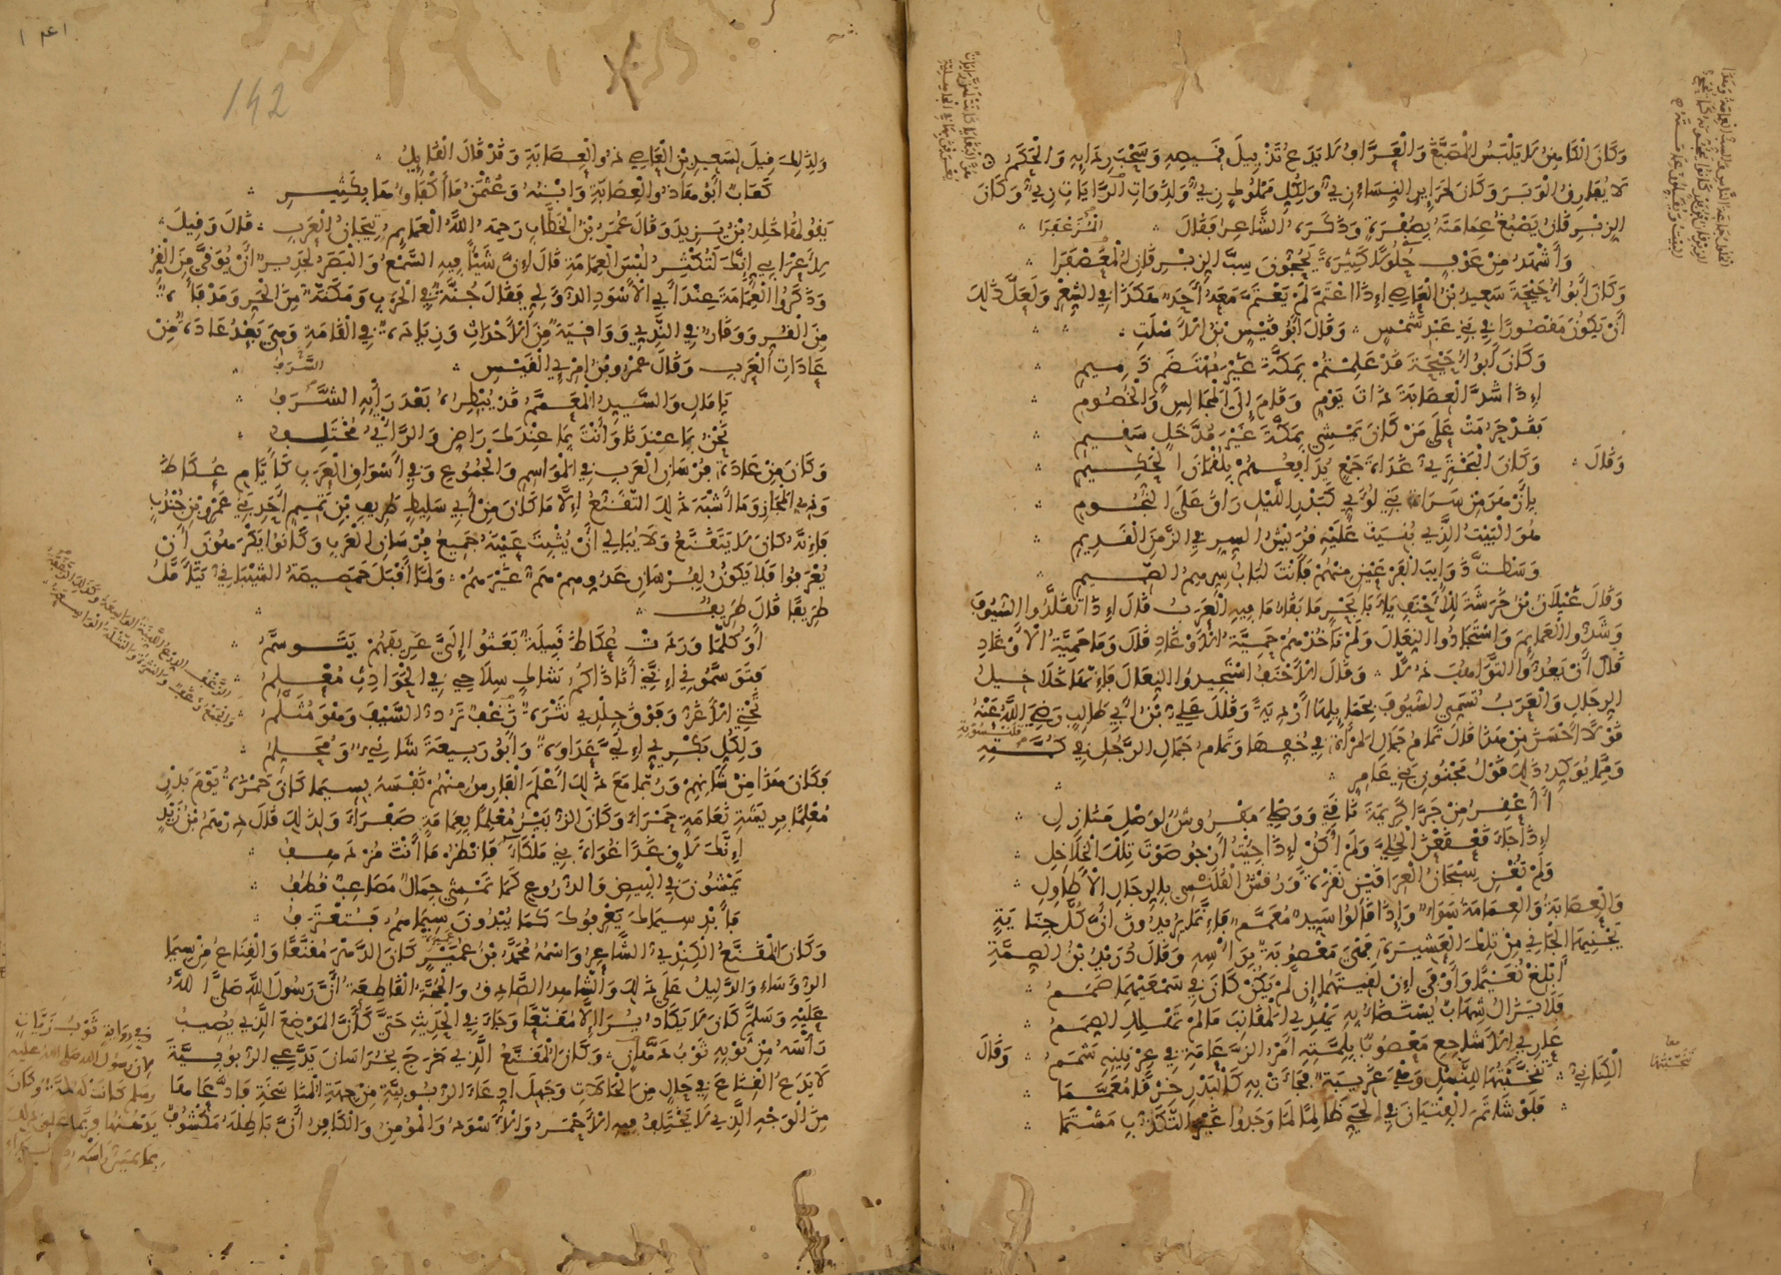 وَكَانَ الْكَاهِنُ لَا يَلْبَسُ الْمُصَبَّغَ وَالْعَرَّافُ لَا يَدَعُ تَذْيِيلَ قَمِيصِهِ وَسَحْبَ رِدَائِهِ وَالْحَكَمُ
لَا يُفَارِقُ الْوَبَرَ وَكَانَ لِحَرَائِرِ النِّسَاءِ زِيٌّ وَلِكُلِّ مَمْلُوكٍ زِيٌّ وَلِذَوَاتِ الرَّايَاتِ زِيٌّ وَكَانَ
الزِّبْرِقَانُ يَصْبُغُ عِمَامَتَهُ بِصُفْرَةٍ وَذَكَرَهُ الشَّاعِرُ فَقَالَ
وَأَشْهَدُ مِنْ عَوْفٍ حُلُولًا كَثِيرَةً يَحُجُّونَ سِبَّ الزِّبْرِقَانِ الْمُعَصْفَرَا
وَكَانَ أَبُو أُحَيْحَةَ سَعِيدُ بْنُ الْعَاصِي إِذَا اعْتَمَّ لَمْ يَعْتَمَّ مَعَهُ أَحَدٌ هَكَذَا فِي الشِّعْرِ وَلَعَلَّ ذَلِكَ
أَنْ يَكُونَ مَقْصُورًا فِي بَنِي عَبْدِ شَمْسٍ وَقَالَ أَبُو قَيْسِ بْنُ الْأَسْلَتِ
وَكَانَ أَبُو أُحَيْحَةَ قَدْ عَلِمْتُمْ بِمَكَّةَ غَيْرَ مُهْتَضَمٍ ذَمِيمِ
إِذَا شَدَّ الْعِصَابَةَ ذَاتَ يَوْمٍ وَقَامَ إِلَى الْمَجَالِسِ وَالْخُصُومِ
فَقَدْ حَرُمَتْ عَلَى مَنْ كَانَ يَمْشِي بِمَكَّةَ غَيْرَ مُدَّخَلٍ سَقِيمِ
وَقَالَ وَكَانَ الْبَخْتَرِيُّ غَدَاةَ جَمْعٍ يُدَافِعُهُمْ بِلُقْمَانَ الْحَكِيمِ
بِأَزْهَرَ مِنْ سَرَاةِ بَنِي لُؤَيٍّ كَبَدْرِ اللَّيْلِ رَاقَ عَلَى النُّجُومِ
هُوَ الْبَيْتُ الَّذِي بُنِيَتْ عَلَيْهِ قُرَيْشُ السِّرِّ فِي الزَّمَنِ الْقَدِيمِ
وَسَطْتَ ذَوَائِبَ الْفَرْعَيْنِ مِنْهُمْ فَأَنْتَ لُبَابُ سِرِّهِمُ الصَّمِيمِ
وَقَالَ غَيْلَانُ بْنُ خَرَشَةَ لِلْأَحْنَفِ يَا أَبَا بَحْرٍ مَا بَقَاءُ مَا فِيهِ الْعَرَبُ قَالَ إِذَا تَقَلَّدُوا السُّيُوفَ
وَشَدُّوا الْعَمَائِمَ وَاسْتَجَادُوا النِّعَالَ وَلَمْ تَأْخُذْهُمْ حَمِيَّةُ الْأَوْغَادِ قَالَ وَمَا حَمِيَّةُ الْأَوْغَادِ
قَالَ أَنْ يَعُدُّوا التَّوَاهُبَ ذُلًّا وَقَالَ الْأَحْنَفُ اسْتَجِيدُوا النِّعَالَ فَإِنَّهَا خَلَاخِيلُ
الرِّجَالِ وَالْعَرَبُ تُسَمِّي السُّيُوفَ بِحَمَائِلِهَا أَرْدِيَةً وَقَالَ عَلِيُّ بْنُ أَبِي طَالِبٍ رَضِيَ اللَّهُ عَنْهُ
قَوْلًا أَحْسَنَ مِنْ هَذَا قَالَ تَمَامُ جَمَالِ الْمَرْأَةِ فِي خُفِّهَا وَتَمَامُ جَمَالِ الرَّجُلِ فِي كُمَّتِهِ
وَمِمَّا يُؤَكِّدُ ذَلِكَ قَوْلُ مَجْنُونِ بَنِي عَامِرٍ
أَأَعْقِرُ مِنْ جَرَّا كَرِيمَةَ نَاقَتِي وَوَصْلِي مَفْرُوشٌ لِوَصْلِ مَنَازِلِ
إِذَا جَاءَ قَعْقَعْنَ الْحُلِيَّ وَلَمْ أَكُنْ إِذَا جِئْتُ أَرْجُو صَوْتَ تِلْكَ الْخَلَاخِلِ
وَلَمْ تُغْنِ سِيجَانُ الْعِرَاقَيْنِ نَقْرَةً وَرُقْشُ الْقُلَنْسِي بِالرِّجَالِ الْأَطَاوِلِ
وَالْعِصَابَةُ وَالْعِمَامَةُ سَوَاءٌ وَإِذَا قَالُوا سَيِّدٌ مُعَمَّمٌ فَإِنَّمَا يُرِيدُونَ أَنَّ كُلَّ جِنَايَةٍ
يَجْنِيهَا الْجَانِي مِنْ تِلْكَ الْعَشِيرَةِ فَهْيَ مَعْصُوبَةٌ بِرَأْسِهِ وَقَالَ دُرَيْدُ بْنُ الصِّمَّةِ
أَبْلِغْ نُعَيْمًا وَأَوْفَى إِنْ لَقِيتَهُمَا إِنْ لَمْ يَكُنْ كَانَ فِي سَمْعَيْهِمَا صَمَمُ
فَلَا يَزَالُ شِهَابٌ يُسْتَضَاءُ بِهِ يَهْدِي الْمَقَانِبَ مَا لَمْ تَهْلِكِ الصِّمَمُ
عَارِي الْأَشَاجِعِ مَعْصُوبٌ بِلِمَّتِهِ أَمْرُ الزَّعَامَةِ فِي عِرْنِينِهِ شَمَمُ وَقَالَ
الْكِنَانِيُّ تَنَخَّبْتُهَا لِلنَّسْلِ وَهْيَ غَرِيبَةٌ فَجَاءَتْ بِهِ كَالْبَدْرِ خِرْقًا مُعَمَّمَا
فَلَوْ شَاتَمَ الْفِتْيَانَ فِي الْحَيِّ ظَالِمًا لَمَا وَجَدُوا غَيْرَ التَّكَذُّبِ مَشْتَمَا
142
وَلِذَلِكَ قِيلَ لِسَعِيدِ بْنِ الْعَاصِي ذُو الْعِصَابَةِ وَقَدْ قَالَ الْقَائِلُ
كَعَابٌ أَبُوهَا ذُو الْعِصَابَةِ وَابْنُهُ وَعُثْمَنُ مَا أَكْفَاؤُهَا بِكَثِيرِ
يَقُولُهَا خَالِدُ بْنُ يَزِيدَ وَقَالَ عُمَرُ بْنُ الْخَطَّابِ رَحِمَهُ اللَّهُ الْعَمَائِمُ تِيجَانُ الْعَرَبِ قَالَ وَقِيلَ
لِأَعْرَابِيٍّ إِنَّكَ لَتُكْثِرُ لُبْسَ الْعِمَامَةِ قَالَ إِنَّ شَيْئًا فِيهِ السَّمْعُ وَالْبَصَرُ لَجَدِيرٌ أَنْ يُوَقَّى مِنَ الْقُرِّ
وَذَكَرُوا الْعِمَامَةَ عِنْدَ أَبِي الْأَسْوَدِ الدُّؤَلِي فَقَالَ جُنَّةٌ فِي الْحَرْبِ وَمَكَنَّةٌ مِنَ الْحَرِّ وَمَدْفَأَةٌ
مِنَ الْقُرِّ وَوَقَارٌ فِي النَّدِيِّ وَوَاقِيَةٌ مِنَ الْأَحْدَاثِ وَزِيَادَةٌ فِي الْقَامَةِ وَهِيَ بَعْدُ عَادَةٌ مِنْ
عَادَاتِ الْعَرَبِ وَقَالَ عَمْرُو بْنُ امْرِئِ الْقَيْسِ
يَا مَالِ وَالسَّيِّدُ الْمُعَمَّمُ قَدْ يُبْطِرُهُ بَعْدَ رَأْيِهِ السَّرَفُ
نَحْنُ بِمَا عِنْدَنَا وَأَنْتَ بِمَا عِنْدَكَ رَاضٍ وَالرَّأْيُ مُخْتَلِفُ
وَكَانَ مِنْ عَادَةِ فُرْسَانِ الْعَرَبِ فِي الْمَوَاسِمِ وَالْجُمُوعِ وَفِي أَسْوَاقِ الْعَرَبِ كَأَيَّامِ عُكَاظَ
وَذِي الْمَجَازِ وَمَا أَشْبَهَ ذَلِكَ التَّقَنُّعُ إِلَّا مَا كَانَ مِنْ أَبِي سَلِيطٍ طَرِيفِ بْنِ تَمِيمٍ أَحَدِ بَنِي عَمْرِو بْنِ جُنْدُبٍ
فَإِنَّهُ كَانَ لَا يَتَقَنَّعُ وَلَا يُبَالِي أَنْ يُثْبِتَ عَيْنَهُ جَمِيعُ فُرْسَانِ الْعَرَبِ وَكَانُوا يَكْرَهُونَ أَنْ
يُعْرَفُوا فَلَا يَكُونُ لِفُرْسَانِ عَدُوِّهِمْ هَمٌّ غَيْرَهُمْ وَلَمَّا أَقْبَلَ حَمَصِيصَةُ الشَّيْبَانِيُّ يَتَأَمَّلُ
طَرِيفًا قَالَ طَرِيفٌ
أَوَ كُلَّمَا وَرَدَتْ عُكَاظَ قَبِيلَةٌ بَعَثُوا إِلَيَّ عَرِيفَهُمْ يَتَوَسَّمُ
فَتَوَسَّمُونِي إِنَّنِي أَنَا ذَاكُمُ شَاكٍ سِلَاحِي فِي الْحَوَادِثِ مُعْلِمُ
تَحْتِي الْأَغَرُّ وَفَوْقَ جِلْدِي نَثْرَةٌ زَغْفٌ تَرُدُّ السَّيْفَ وَهْوَ مُثَلَّمُ
وَلِكُلِّ بَكْرِيٍّ إِلَيَّ عَدَاوَةٌ وَأَبُو رَبِيعَةَ شَانِئٌ وَمُحَلِّمُ
فَكَانَ هَذَا مِنْ شَأْنِهِمْ وَرُبَّمَا مَعَ ذَلِكَ أَعْلَمَ الْفَارِسُ مِنْهُمْ نَفْسَهُ بِسِيمَا كَانَ حَمْزَةُ يَوْمَ بَدْرٍ
مُعْلِمًا بِرِيشَةِ نَعَامَةٍ حَمْرَاءَ وَكَانَ الزُّبَيْرُ مُعْلِمًا بِعِمَامَةٍ صَفْرَاءَ وَلِذَلِكَ قَالَ دِرْهَمُ بْنُ زَيْدٍ
إِنَّكَ لَاقٍ غَدًا غُوَاةَ بَنِي مَلْكَاءَ فَانْظُرْ مَا أَنْتَ مُزْدَهِفُ
يَمْشُونَ فِي الْبَيْضِ وَالدُّرُوعِ كَمَا تَمْشِي جِمَالٌ مَصَاعِبٌ قُطُفُ
فَأَبْدِ سِيمَاكَ يَعْرِفُوكَ كَمَا يُبْدُونَ سِيمَاهُمْ فَتُعْتَرَفُ
وَكَانَ الْمُقَنَّعُ الْكِنْدِيُّ الشَّاعِرُ وَاسْمُهُ مُحَمَّدُ بْنُ عُمَيْرٍ كَانَ الدَّهْرَ مُقَنَّعًا وَالْقِنَاعُ مِنْ سِيمَا
الرُّؤَسَاءِ وَالدَّلِيلُ عَلَى ذَلِكَ وَالشَّاهِدُ الصَّادِقُ وَالْحُجَّةُ الْقَاطِعَةُ أَنَّ رَسُولَ اللَّهِ صَلَّى اللَّهُ
عَلَيْهِ وَسَلَّمَ كَانَ لَا يَكَادُ يُرَى إِلَّا مُقَنَّعًا وَجَاءَ فِي الْحَدِيثِ حَتَّى كَأَنَّ الْمَوْضِعَ الَّذِي يُصِيبُ
رَأْسَهُ مِنْ ثَوْبِهِ ثَوْبُ دَهَّانٍ وَكَانَ الْمُقَنَّعُ الَّذِي خَرَجَ بِخُرَاسَانَ يَدَّعِي الرُّبُوبِيَّةَ
لَا يَدَعُ الْقِنَاعَ فِي حَالٍ مِنَ الْحَالَاتِ وَجَهِلَ ادِّعَاءَ الرُّبُوبِيَّةِ مِنْ جِهَةِ الْمُنَاسَخَةِ فَادَّعَاهَا
مِنَ الْوَجْهِ الَّذِي لَا يَخْتَلِفُ فِيهِ الْأَحْمَرُ وَالْأَسْوَدُ وَالْمُؤْمِنُ وَالْكَافِرُ أَنَّ بَاطِلَهُ مَكْشُوفٌ